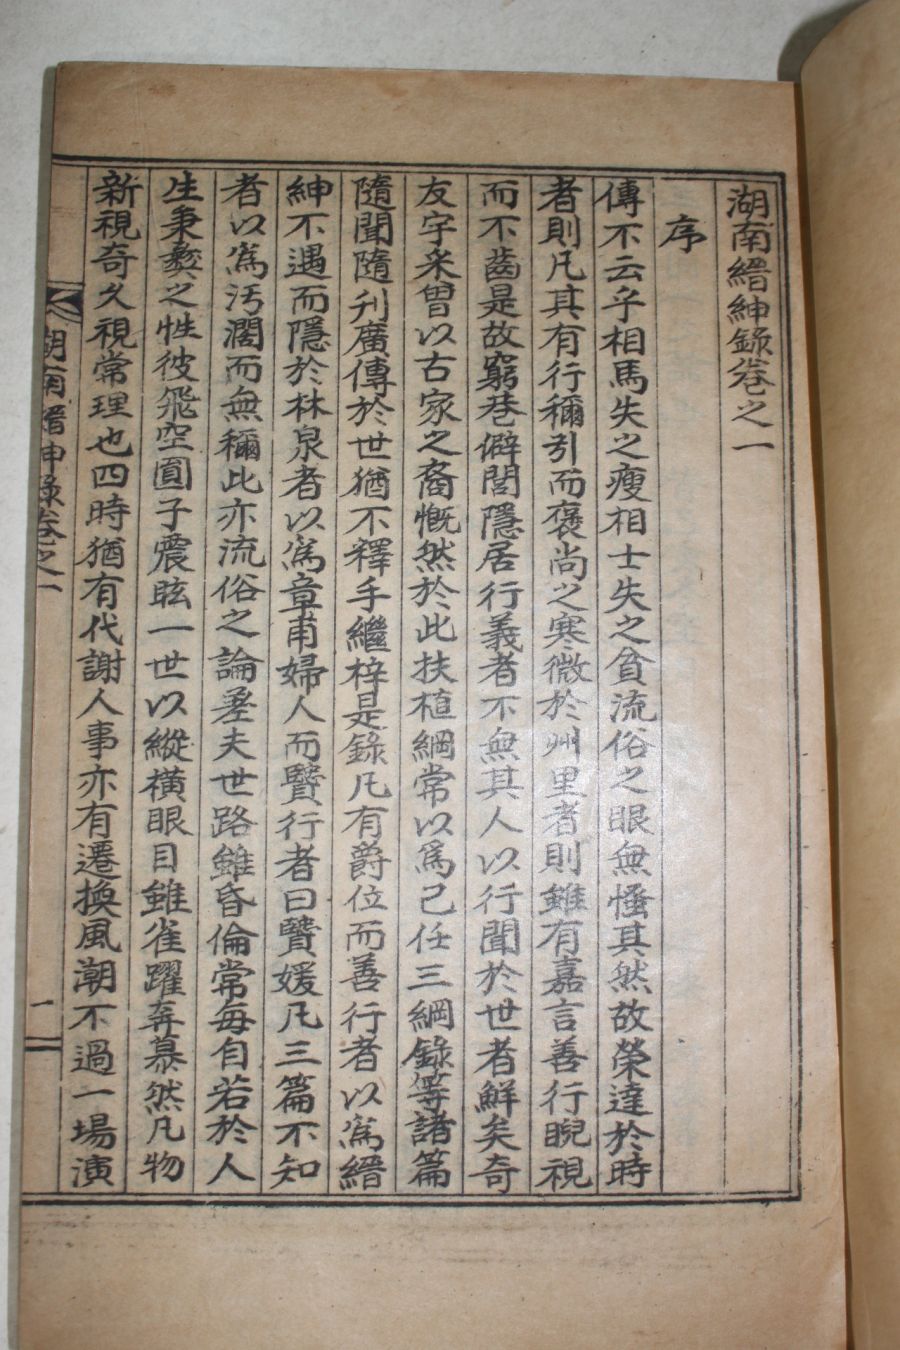 湖南縉紳錄卷之一
序
傳不云乎相馬失之瘦相士失之貧流俗之眼無恠其然故榮達於時
者則凡其有行稱引而褒尚之寒微於州里者則雖有嘉言善行睨視
而不齒是故窮巷僻閭隱居行義者不無其人以行聞於世者鮮矣奇
友宇采曾以古家之裔慨然於此扶植綱常以爲己任三綱錄等諸篇
隨聞隨刊廣傳於世猶不釋手繼梓是錄凡有爵位而善行者以爲縉
紳不遇而隱於林泉者以爲章甫婦人而賢行者曰賢媛凡三篇不知
者以爲汚濶而無稱此亦流俗之論耋夫世路雖昏倫常每自若於人
生秉彝之性彼飛空圓子震眩一世以縱橫眼目雖雀躍奔慕然凡物
新視奇久視常理也四時猶有代謝人事亦有遷換風潮不過一場演
湖南縉紳錄卷之一
一